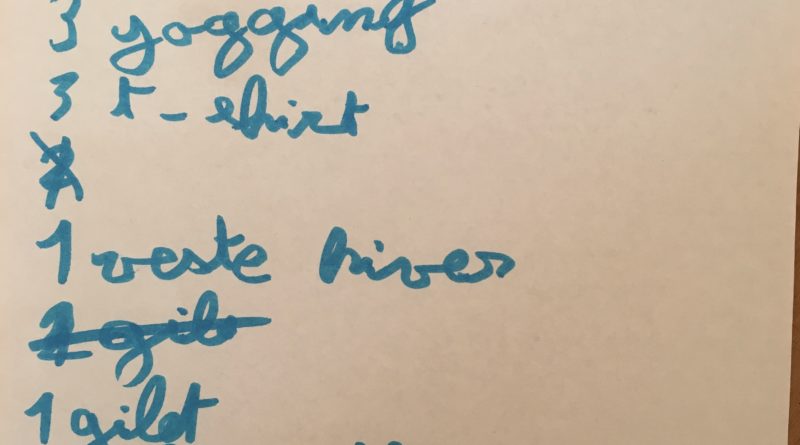 3 yogging
3 t-shirt
1 veste hiver
1 gilet